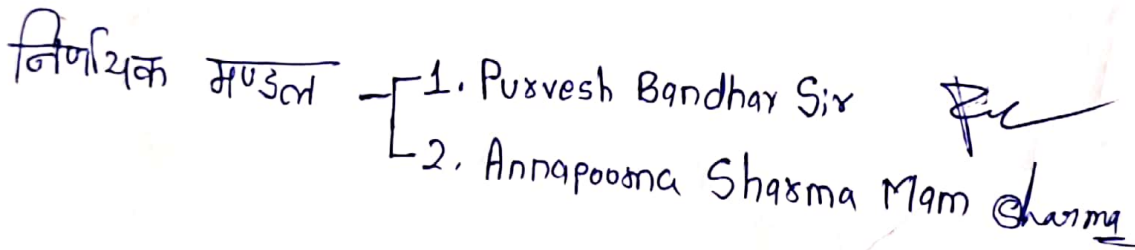 निर्णायक मण्डल - 1. Purvesh Bandhar Sir
2. Annapoorna Sharma Mam Sharma